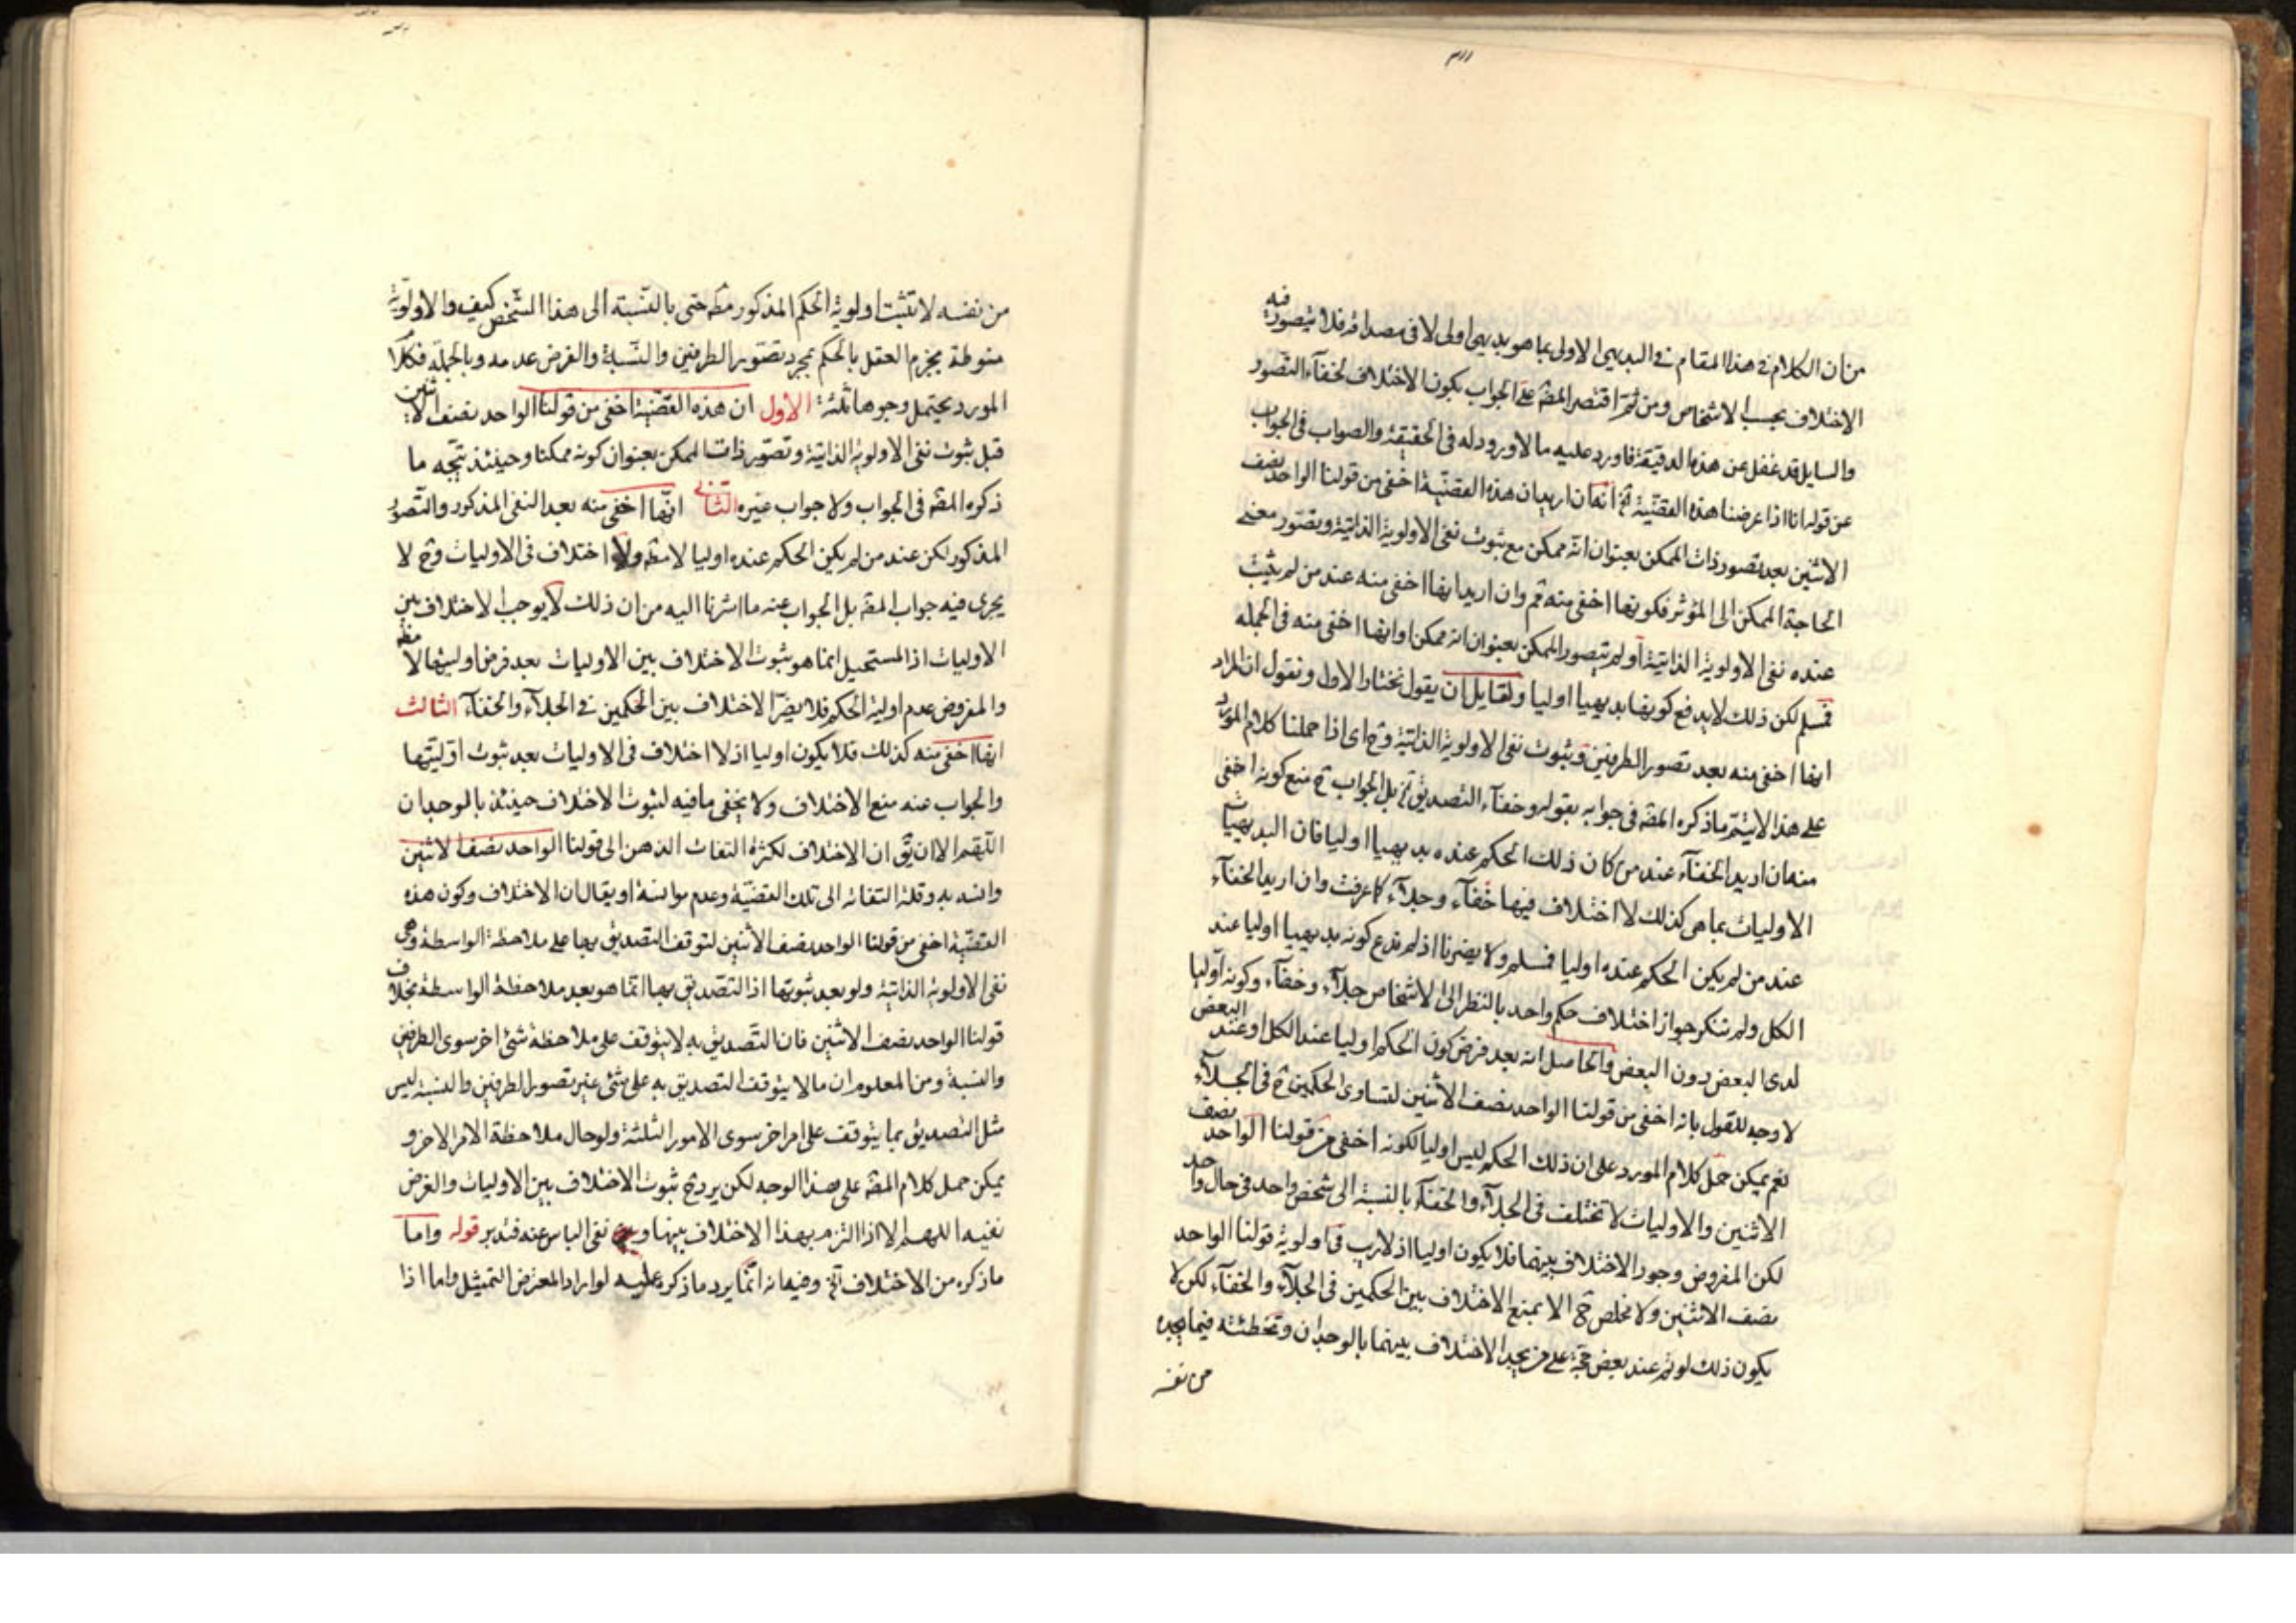 من ان الكلام فى هذا المقام فى البديهى الاولى بما هو بديهى اولى لا فى مصداقه فلا يتصور فيه
الاختلاف بحسب الاشخاص ومن ثم اقتصر المصه على الجواب بكون الاختلاف لخفآء التصور
والسايل قد غفل عن هذه الدقيقة فاورد عليه ما لا ورود له فى الحقيقة والصواب فى الجواب
عن قوله انا اذا عرضنا هذه القضية الخ انه ان اريد ان هذه القضية اخفى من قولنا الواحد نصف
الاثنين بعد تصور ذات الممكن بعنوان انه ممكن مع ثبوت نفى الاولوية الذاتية وتصور معنى
الحاجة الممكن الى المؤثر فكونها اخفى منه ثم وان اريد انها اخفى منه عند من لم يثبت
عنده نفى الاولوية الذاتية او لم يتصور الممكن بعنوان انه ممكن او انها اخفى منه فى الجمله
فمسلم لكن ذلك لا يدفع كونها بديهيا اوليا ولقايل ان يقول نختار الاول ونقول ان المراد
انها اخفى منه بعد تصور الطرفين وثبوت نفى الاولوية الذاتية وح اى اذا حملنا كلام المورد
على هذا لا يتم ما ذكره المصه فى جوابه بقوله وخفآء التصديق الخ بل الجواب ح منع كونه اخفى
منه ان اريد الخفآء عند من كان ذلك الحكم عنده بديهيا اوليا فان البديهيات
الاوليات بما هى كذلك لا اختلاف فيها خفآء وجلآء كما عرفت وان اريد الخفآء
عند من لم يكن الحكم عنده اوليا فمسلم ولا يضرنا اذ لم ندع كونه بديهيا اوليا عند
الكل ولم ننكر جواز اختلاف حكم واحد بالنظر الى الاشخاص جلآء وخفآء وكونه اوليا
لدى البعض دون البعض والحاصل انه بعد فرض كون الحكم اوليا عند الكل او عند البعض
لا وجه للقول بانه اخفى من قولنا الواحد نصف الاثنين لتساوى الحكمين ح فى الجلآء
نعم يمكن حمل كلام المورد على ان ذلك الحكم ليس اوليا لكونه اخفى من قولنا الواحد نصف
الاثنين والاوليات لا تختلف فى الجلآء والخفآء بالنسبة الى شخص واحد فى حال واحد
لكن المفروض وجود الاختلاف بينهما فلا يكون اوليا اذ لا ريب فى اولوية قولنا الواحد
نصف الاثنين ولا مخلص ح الا بمنع الاختلاف بين الحكمين فى الجلآء والخفآء لكن لا
يكون ذلك لو تم عند بعض حجة على من يجد الاختلاف بينهما بالوجدان وتخطئته فيما يجده
من نفسه
من نفسه لا تثبت اولوية الحكم المذكور مطه حتى بالنسبة الى هذا الشخص كيف والاولوية
منوطة بجزم العقل بالحكم بمجرد تصور الطرفين والنسبة والفرض عدمه وبالجملة فكلام
المورد يحتمل وجوها ثلثة الاول ان هذه القضية اخفى من قولنا الواحد نصف الاثنين
قبل ثبوت نفى الاولوية الذاتية وتصور ذات الممكن بعنوان كونه ممكنا وحينئذ يتجه ما
ذكره المصه فى الجواب ولا جواب غيره الثانى انها اخفى منه بعد النفى المذكور والتصور
المذكور لكن عند من لم يكن الحكم عنده اوليا لا مطه ولا اختلاف فى الاوليات وح لا
يجرى فيه جواب المصه بل الجواب عنه ما اشرنا اليه من ان ذلك لا يوجب الاختلاف بين
الاوليات اذ المستحيل انما هو ثبوت الاختلاف بين الاوليات بعد فرض اوليتها لا مطه
والمفروض عدم اولية الحكم فلا يضر الاختلاف بين الحكمين فى الجلآء والخفآء الثالث
انها اخفى منه كذلك فلا يكون اوليا اذ لا اختلاف فى الاوليات بعد ثبوت اوليتها
والجواب عنه منع الاختلاف ولا يخفى ما فيه لثبوت الاختلاف حينئذ بالوجدان
اللهم الا ان يق ان الاختلاف لكثرة التفات الذهن الى قولنا الواحد نصف الاثنين
وانسه به وقلة التفاته الى تلك القضية وعدم موانسة او يقال ان الاختلاف وكون هذه
القضية اخفى من قولنا الواحد نصف الاثنين لتوقف التصديق بها على ملاحظة الواسطة وهى
نفى الاولوية الذاتية ولو بعد ثبوتها اذ التصديق بها انما هو بعد ملاحظة الواسطة بخلاف
قولنا الواحد نصف الاثنين فان التصديق به لا يتوقف على ملاحظة شئ اخر سوى الطرفين
والنسبة ومن المعلوم ان ما لا يتوقف التصديق به على شئ غير تصور الطرفين والنسبة ليس
مثل التصديق بما يتوقف على امر اخر سوى الامور الثلثة ولو حال ملاحظة الامر الاخر و
يمكن حمل كلام المصه على هذا الوجه لكن يرد ح ثبوت الاختلاف بين الاوليات والغرض
نفيه اللهم الا اذا التزم بهذا الاختلاف بينها و نفى الباس عنه فتدبر قوله واما
ما ذكره من الاختلاف الخ وفيه انه انما يرد ما ذكره عليه لو اراد المعترض التمثيل واما اذا